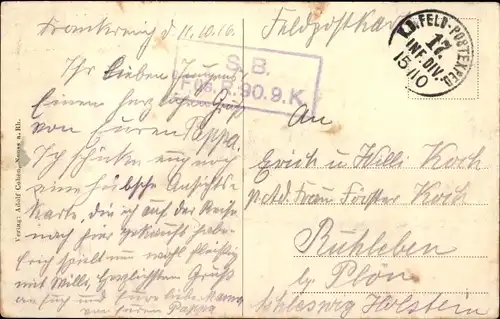 Frankreich d. 11.10.16
Ihr lieben Jungens
Einen herzlichen Gruß
von Eurem Pappa.
Ich schicke euch noch
eine hübsche Ansichts-
karte, die ich auf der Reise
nach hier gekauft habe.
Erich spielt nun wohl fleißig
mit Willi. Herzlichsten Gruß
an Euch und Eure liebe Mama
von Eurem Pappa
Verlag: Adolf Cohen, Neuss a. Rh.
S. B.
90. 9. K
Feldpostkarte
K.D. FELD-POSTEXPED.
17.
INF. DIV.
15/10
An
Erich u Willi Koch
p. Ad. Frau Förster Koch
Ruhleben
b. Plön
Schleswig Holstein